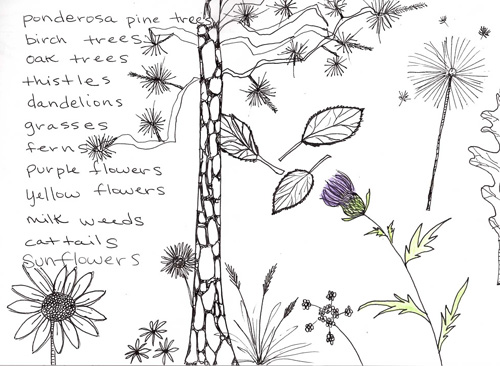 ponderosa pine trees
birch trees
oak trees
thistles
dandelions
grasses
ferns
purple flowers
yellow flowers
milk weeds
cattails
sunflowers